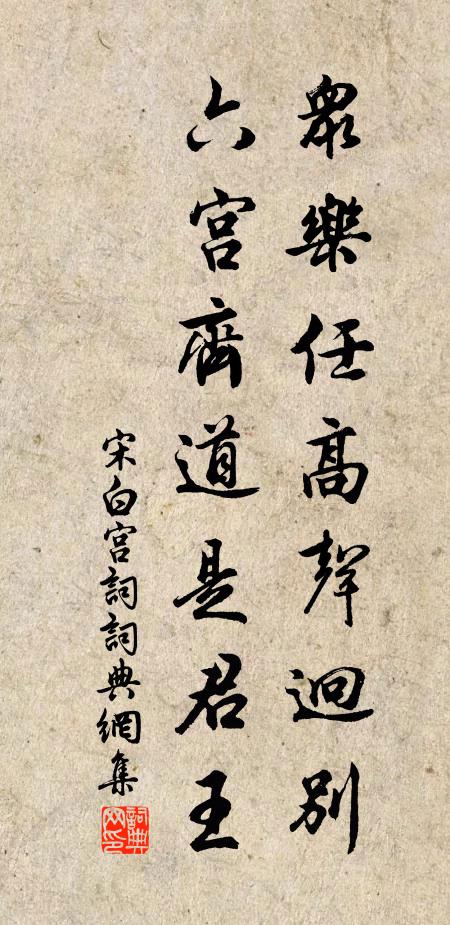 衆樂任高聲迥別
六宮齊道是君王
宋白宮詞詞典網集
詞典網印